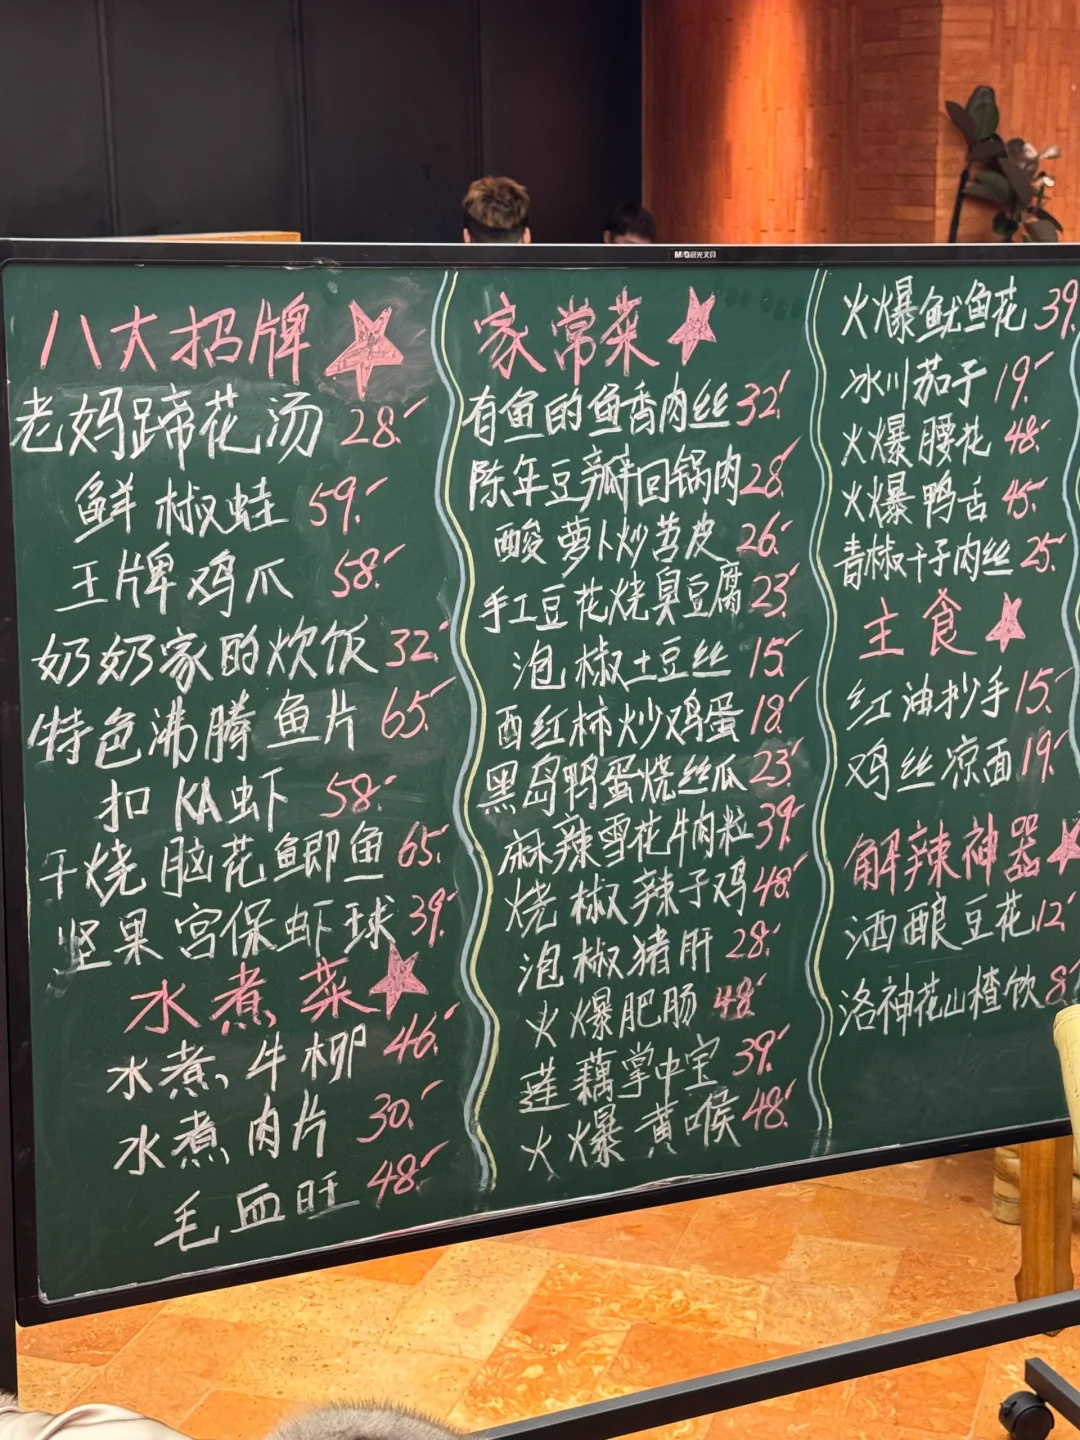 M&G晨光文具
八大招牌
老妈蹄花汤 28.
鲜椒蛙 59.
王牌鸡爪 58.
奶奶家的炊饭 32.
特色沸腾鱼片 65.
扣KA虾 58.
干烧脑花鲫鱼 65.
坚果宫保虾球 39.
水煮菜
水煮牛柳 46.
水煮肉片 30.
毛血旺 48.
家常菜
有鱼的鱼香肉丝 32.
陈年豆瓣回锅肉 28.
酸萝卜炒苕皮 26.
手工豆花烧臭豆腐 23.
泡椒土豆丝 15.
西红柿炒鸡蛋 18.
黑岛鸭蛋烧丝瓜 23.
麻辣雪花牛肉粒 39.
烧椒辣子鸡 48.
泡椒猪肝 28.
火爆肥肠 48.
莲藕掌中宝 39.
火爆黄喉 48.
火爆鱿鱼花 39.
冰川茄子 19.
火爆腰花 48.
火爆鸭舌 45.
青椒干子肉丝 25.
主食
红油抄手 15.
鸡丝凉面 19.
解辣神器
酒酿豆花 12.
洛神花山楂饮 8.